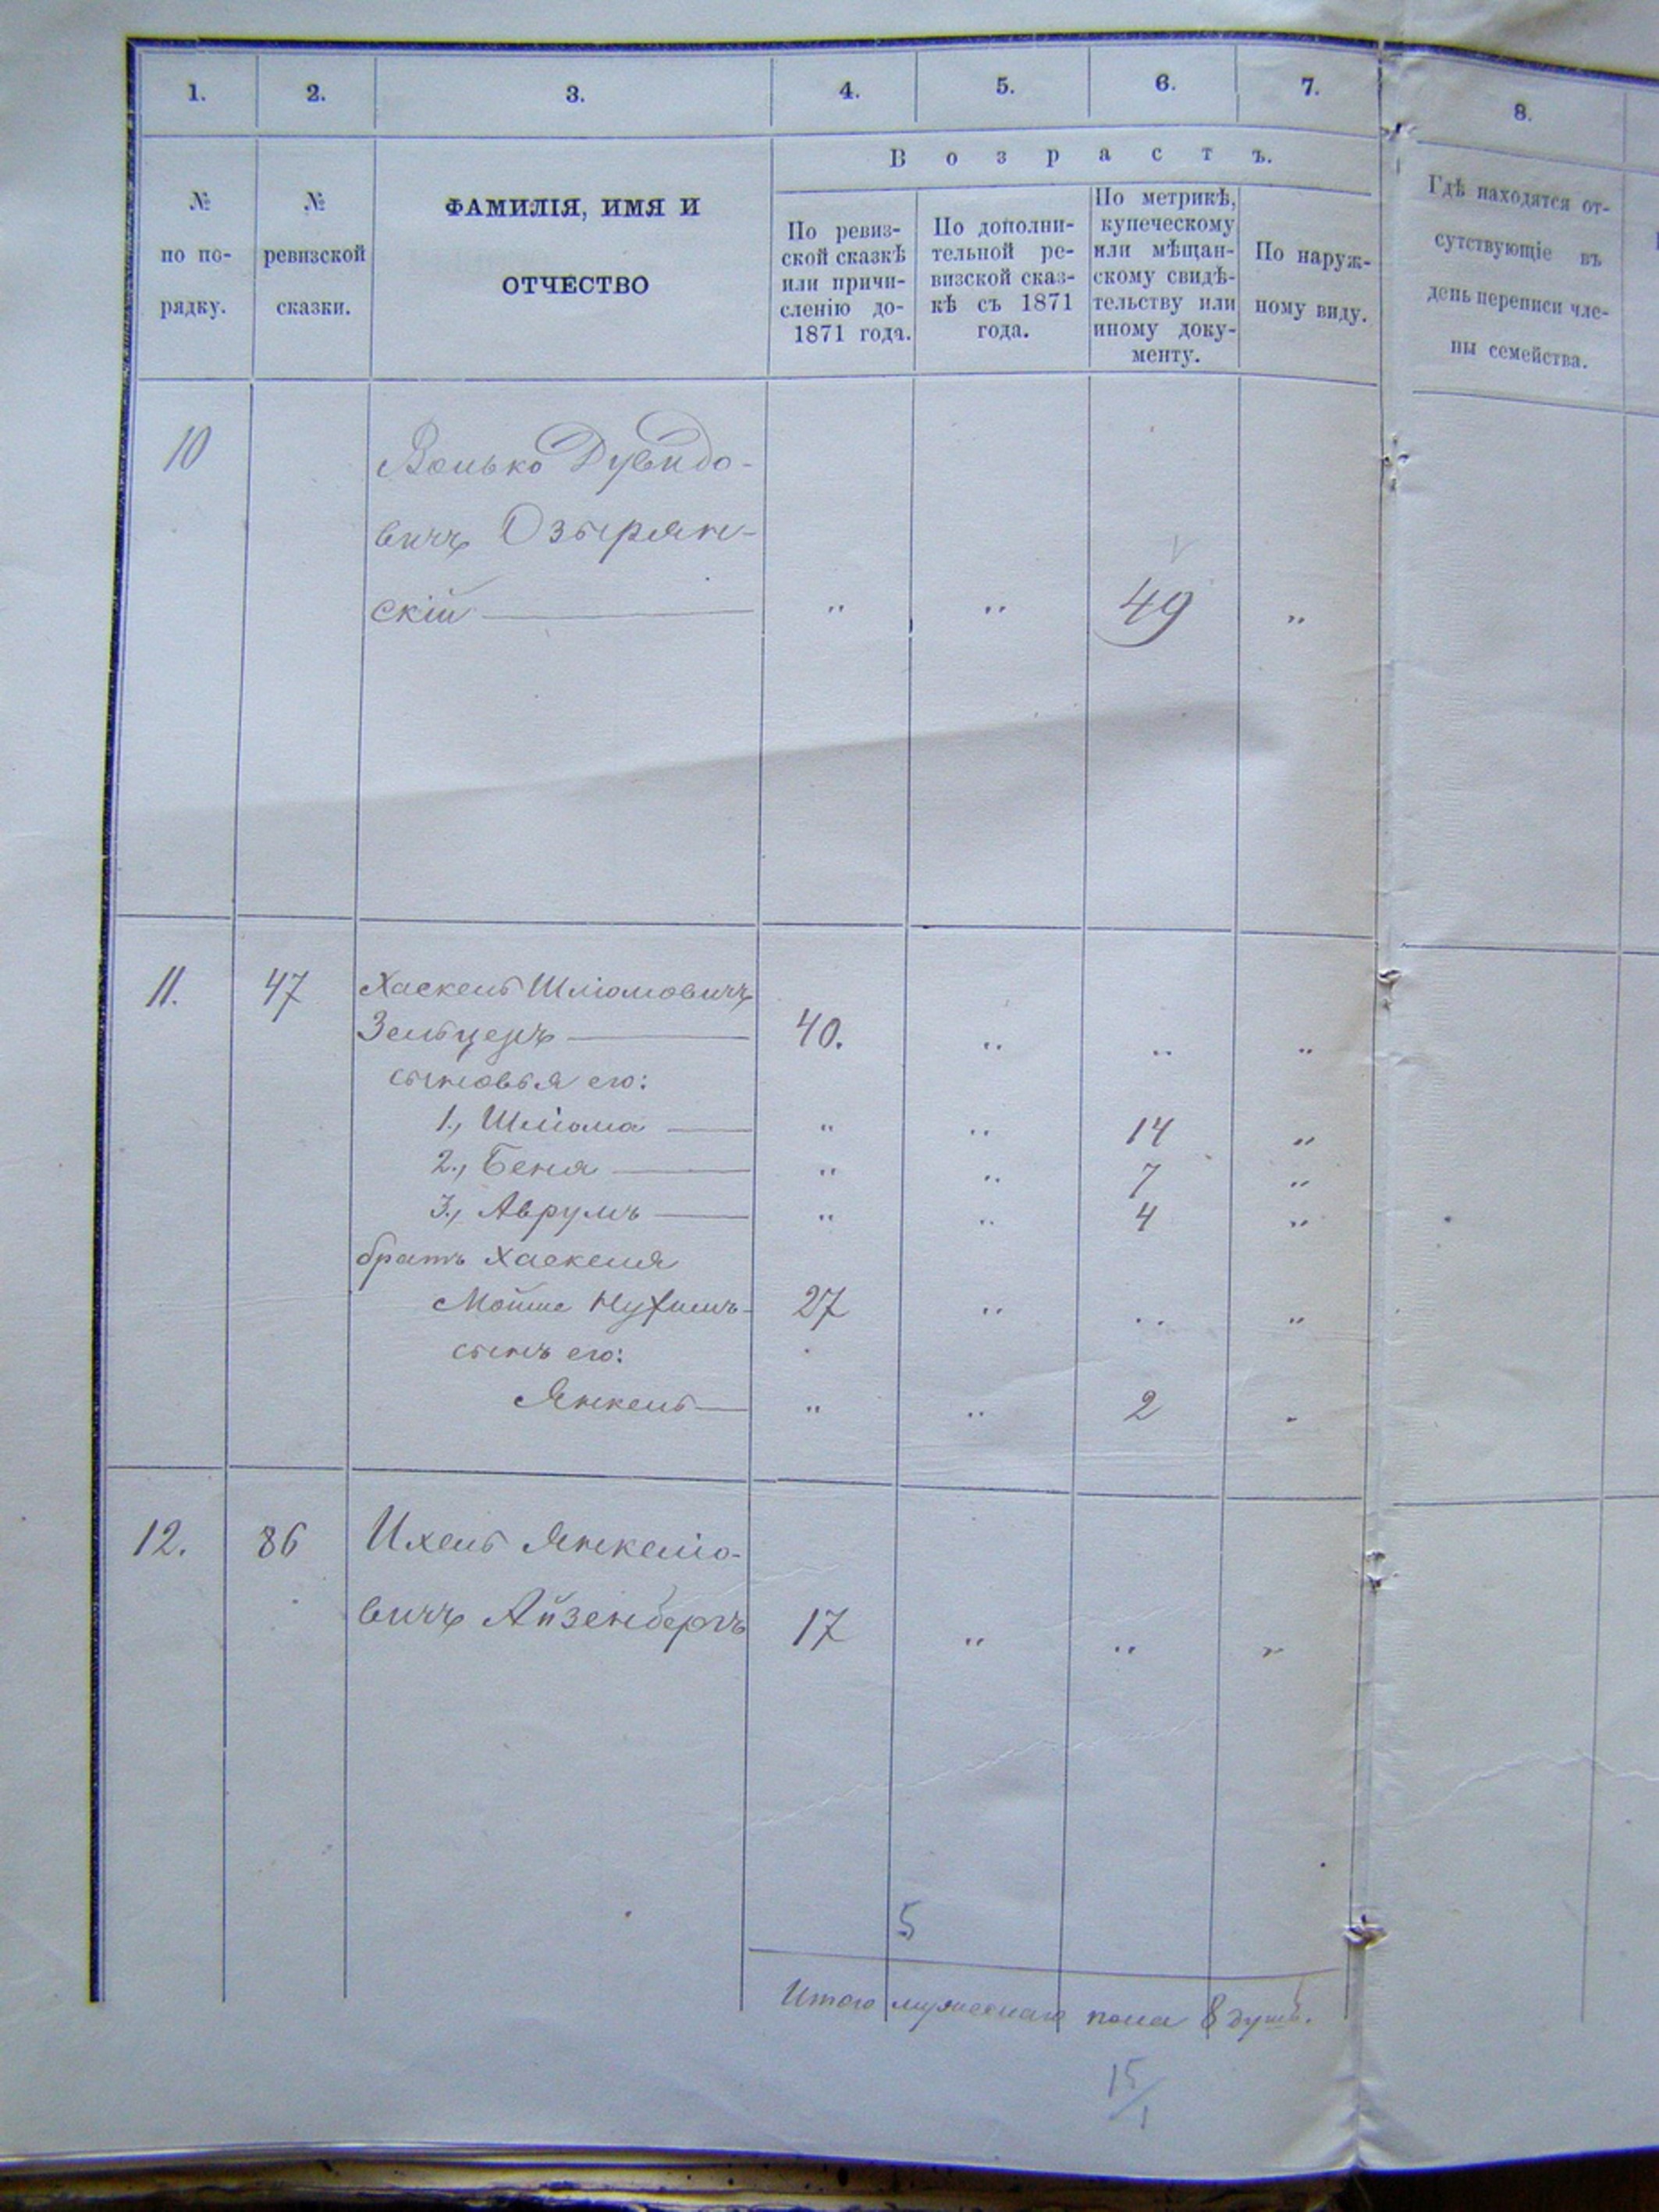 1. 2. 3. 4. 5. 6. 7. 8.
Возрастъ.
№ по по- рядку.
№ ревизской сказки.
ФАМИЛІЯ, ИМЯ И
ОТЧЕСТВО
По ревиз-
ской сказкѣ
или причи-
сленію до-
1871 года.
По дополни-
тельной ре-
визской сказ-
кѣ съ 1871
года.
По метрикѣ,
купеческому
или мѣщан-
скому свидѣ-
тельству или
иному доку-
менту.
По наруж-
ному виду.
Гдѣ находятся от-
сутствующіе въ
день переписи чле-
ны семейства.
10 Волько Дувидо-
вичъ Озырян-
скій „ „ 49 „
11. 47 Хаскель Шліомовичъ
Зельцеръ 40. „ „ „
сыновья его:
1., Шліома „ „ 14 „
2., Беня „ „ 7 „
3., Аврумъ „ „ 4 „
братъ Хаскеля
Мойше Нухимъ 27 „ „ „
сынъ его:
Янкель „ „ 2 „
12. 86 Ихель Янкеліо-
вичъ Айзенбергъ 17 „ „ „
5
Итого мужескаго пола 8 душъ.
15/1